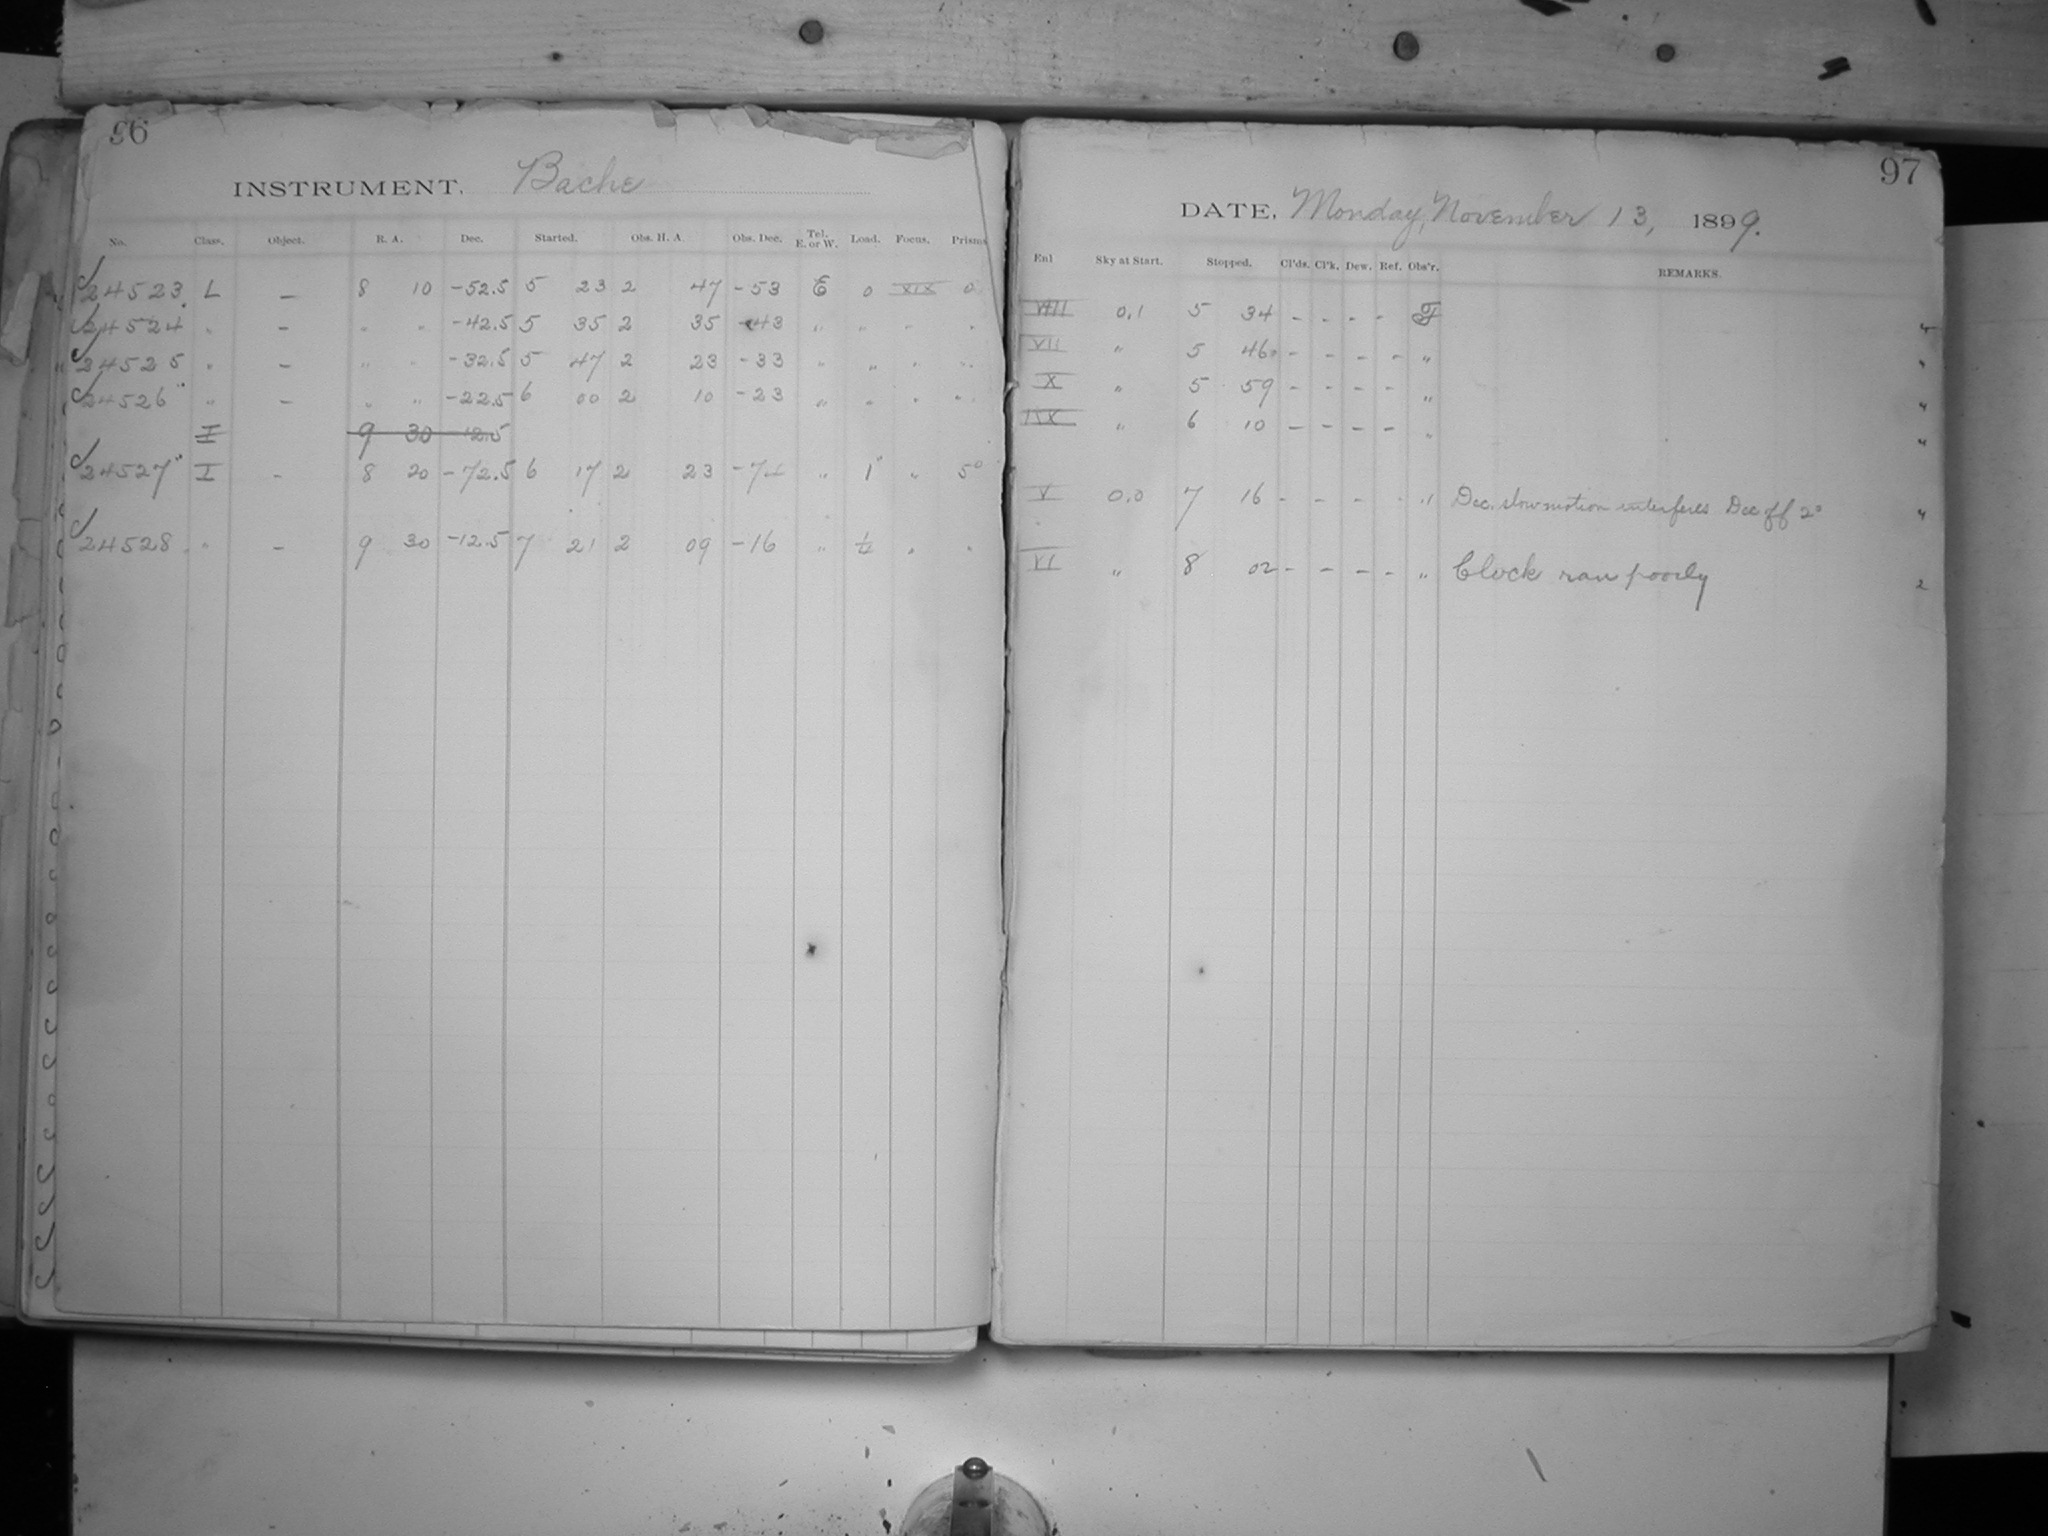 96
INSTRUMENT. Bache
No. Class. Object. R. A. Dec. Started. Obs. H. A. Obs. Dec. Tel. E. or W. Load. Focus. Prisms
24523 L – 8 10 -52.5 5 23 2 47 -53 E 0 XIX 0
24524 " – " " -42.5 5 35 2 35 -43 " " " "
24525 " – " " -32.5 5 47 2 23 -33 " " " "
24526 " – " " -22.5 6 00 2 10 -23 " " " "
I 9 30 -12.5
24527 I – 8 20 -72.5 6 17 2 23 " 1 " 5°
24528 " – 9 30 -12.5 7 21 2 09 -16 " ½ " "
97
DATE, Monday, November 13, 1899.
Enl Sky at Start. Stopped. Cl'ds. Cl'k. Dew. Ref. Obs'r. REMARKS.
VIII 0.1 5 34 – – – – F 4
VII " 5 46 – – – – " "
X " 5 59 – – – – " "
IIX " 6 10 – – – – " "
V 0.0 7 16 – – – – " Dec. slow motion interferes Dec off 2° 4
VI " 8 02 – – – – " Clock ran poorly 2